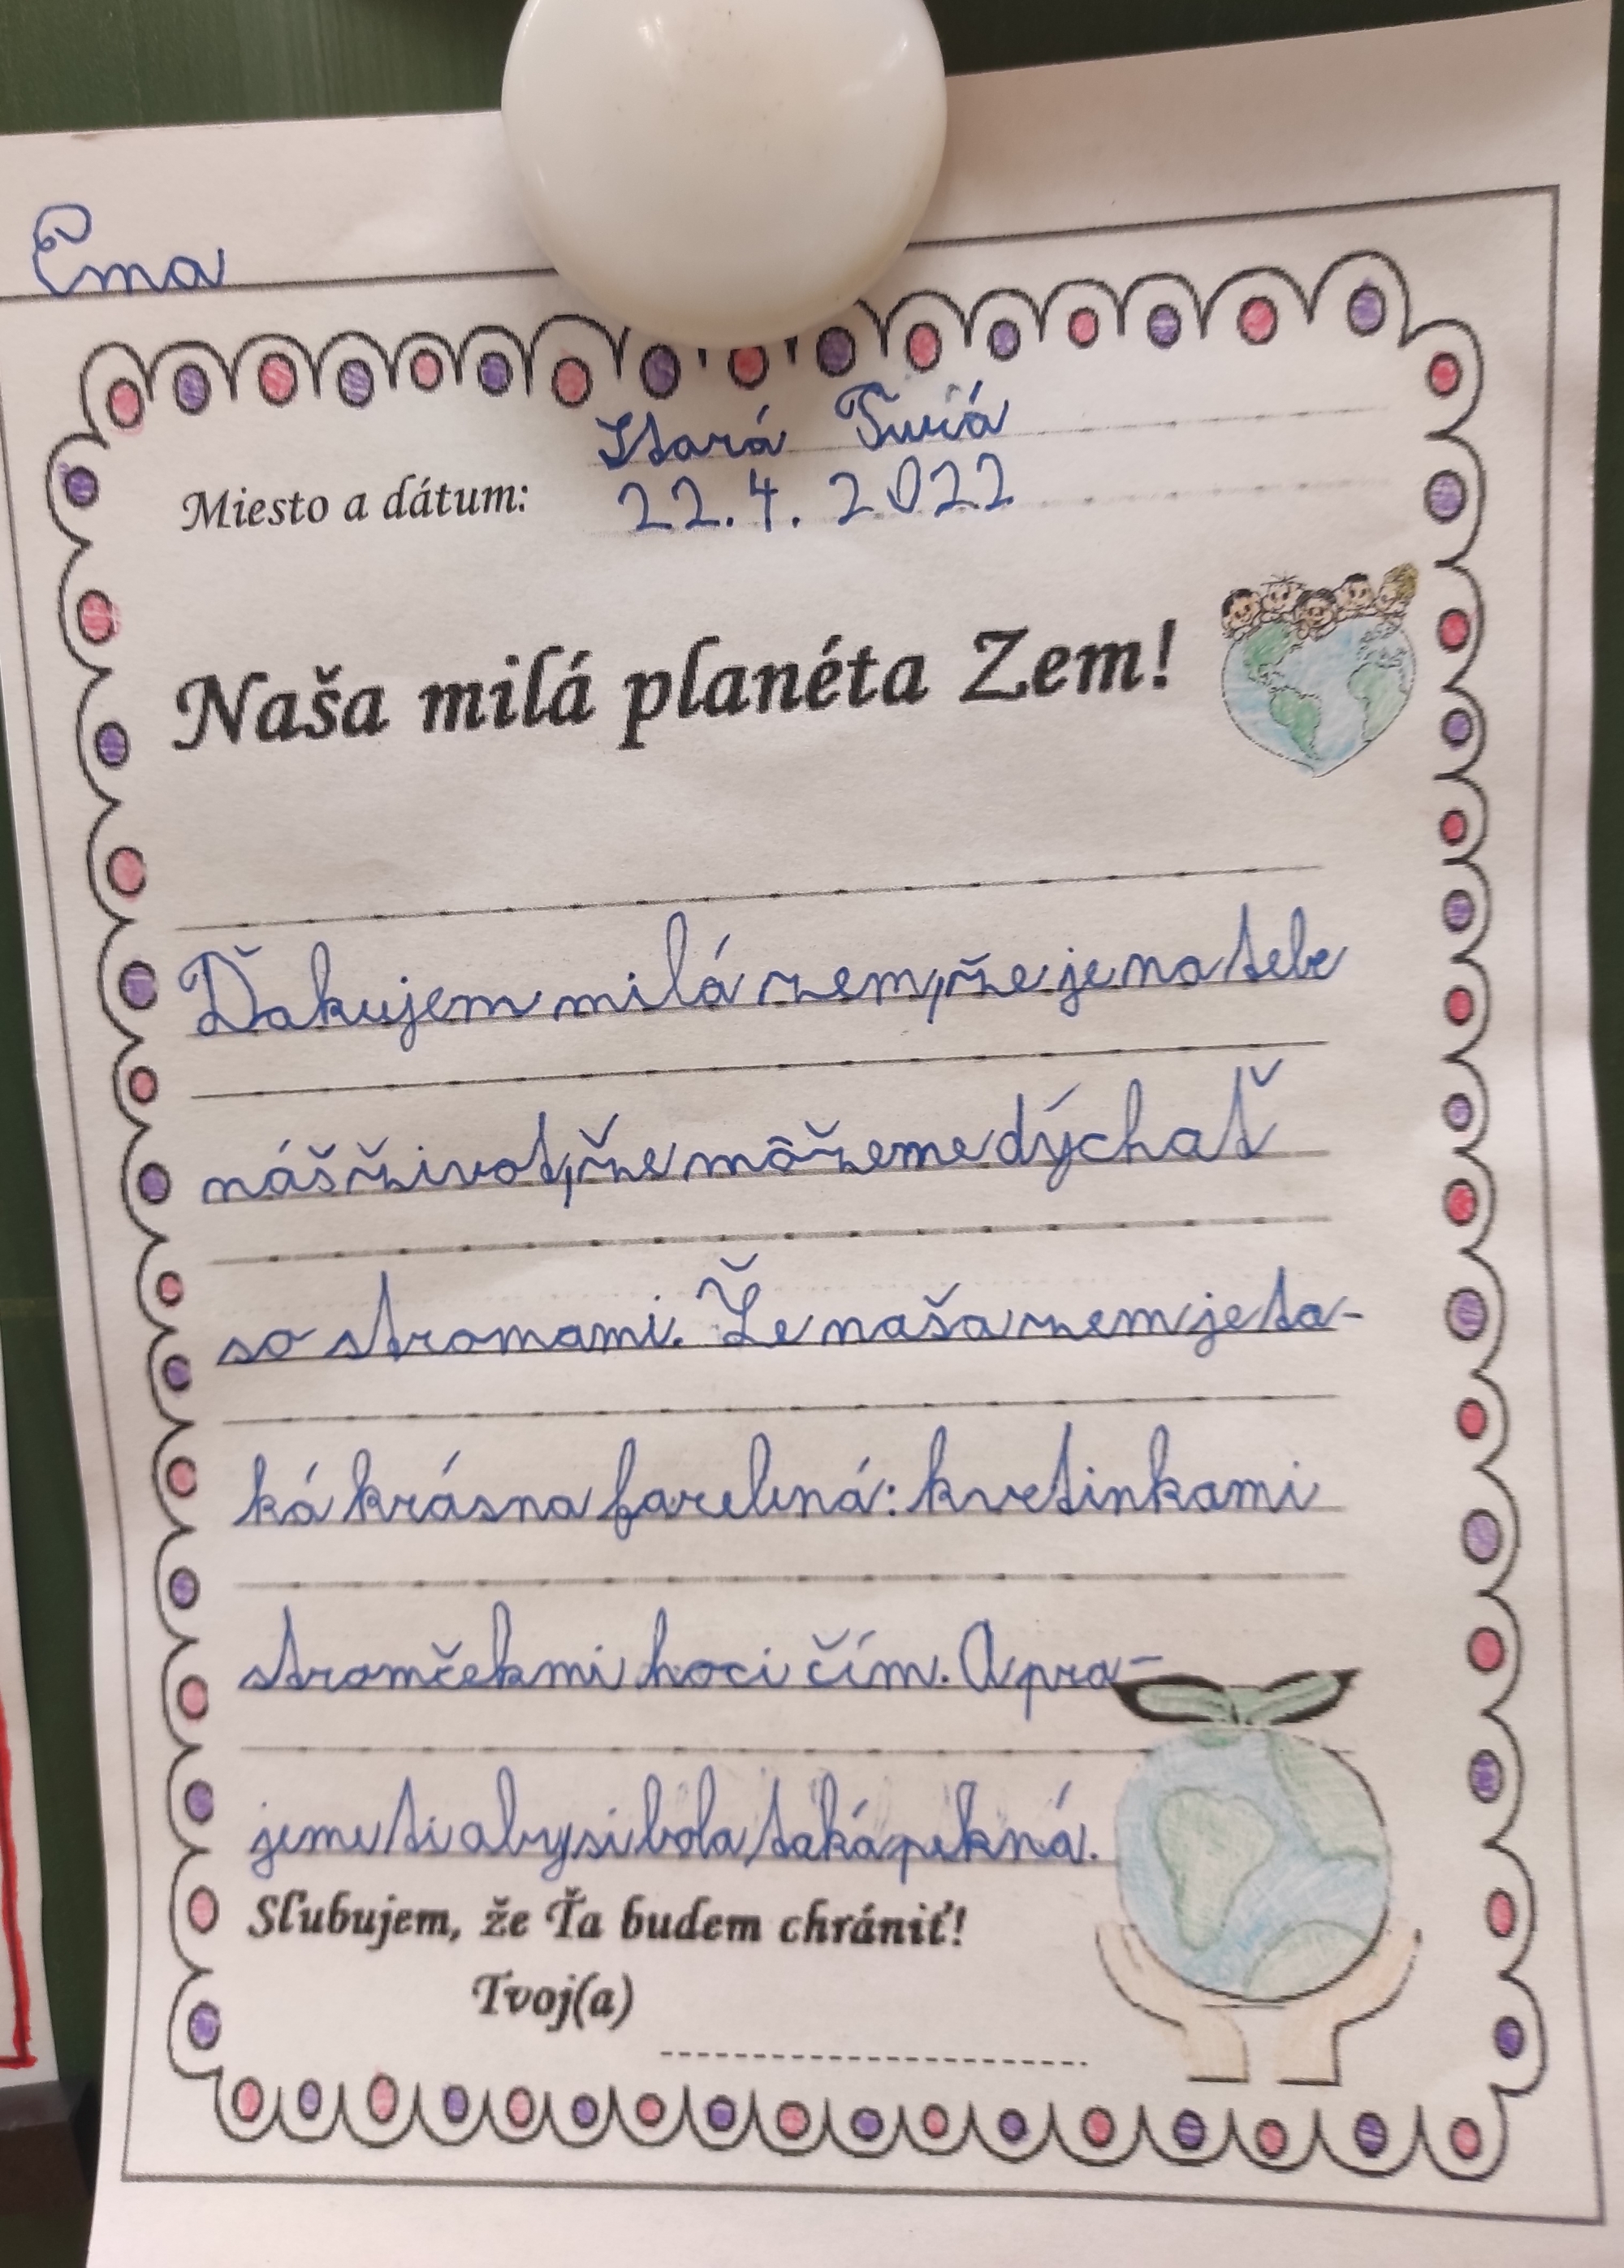 Ema
Stará Turá
Miesto a dátum: 22.4.2022
Naša milá planéta Zem!
Ďakujem milá zem, že je na tebe
náš život, že môžeme dýchať
so stromami. Že naša zem je ta-
ká krásna farebná: kvetinkami
stromčekmi hoci čím. A pra-
jeme ti aby si bola taká pekná.
Sľubujem, že Ťa budem chrániť!
Tvoj(a)